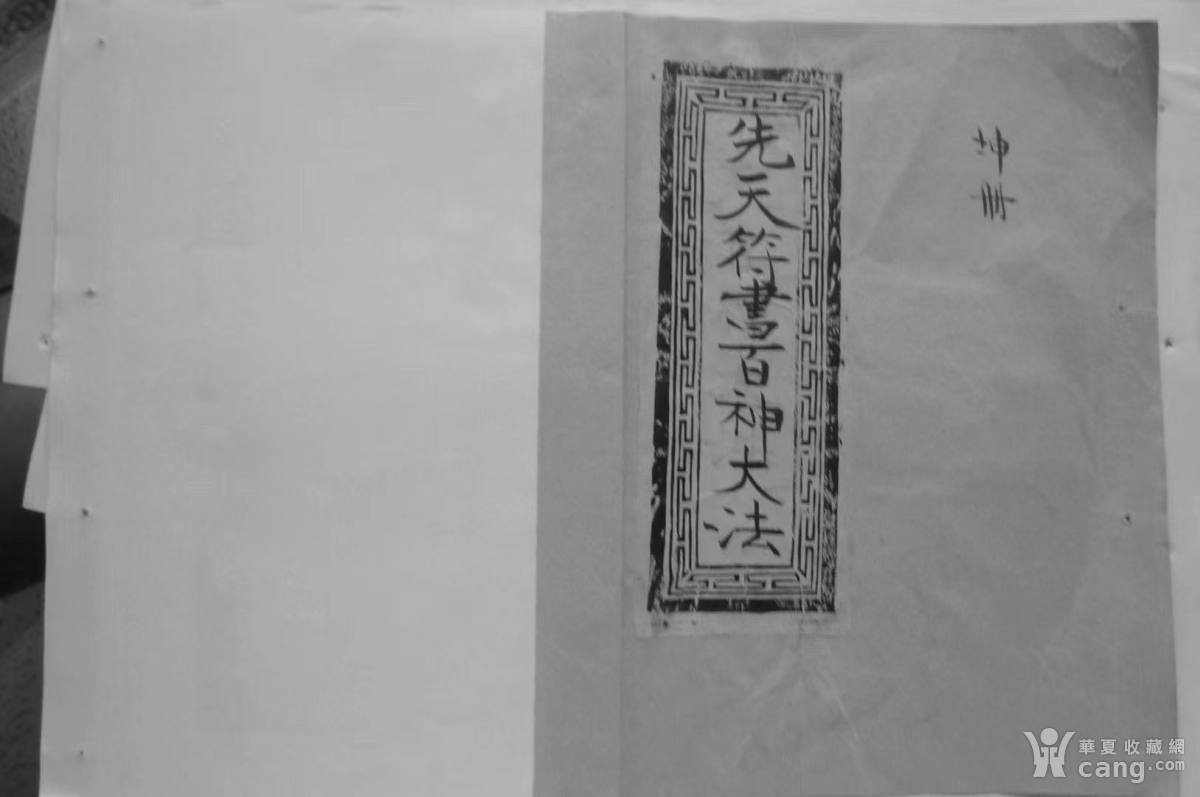 坤册
先天符書百神大法
華夏收藏網
cang.com